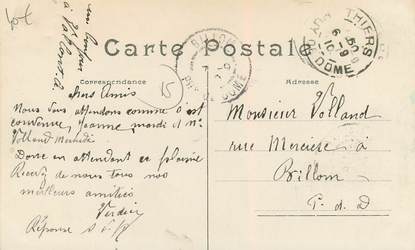 Carte Postale
Correspondance
Adresse
THIERS
DOME
BILLOM
PUY-DE-DOME
15
chers Amis
Nous vous attendons comme c'est
convenu, Jeanne, mardi et Mr
Volland Mercredi
en attendant ce plaisir
Recevez de nous tous nos
meilleurs amitiés
Verdier
Réponse S.V.P
un bonjour
à Volland
Monsieur Volland
rue Mercière à
Billom
P. d. D